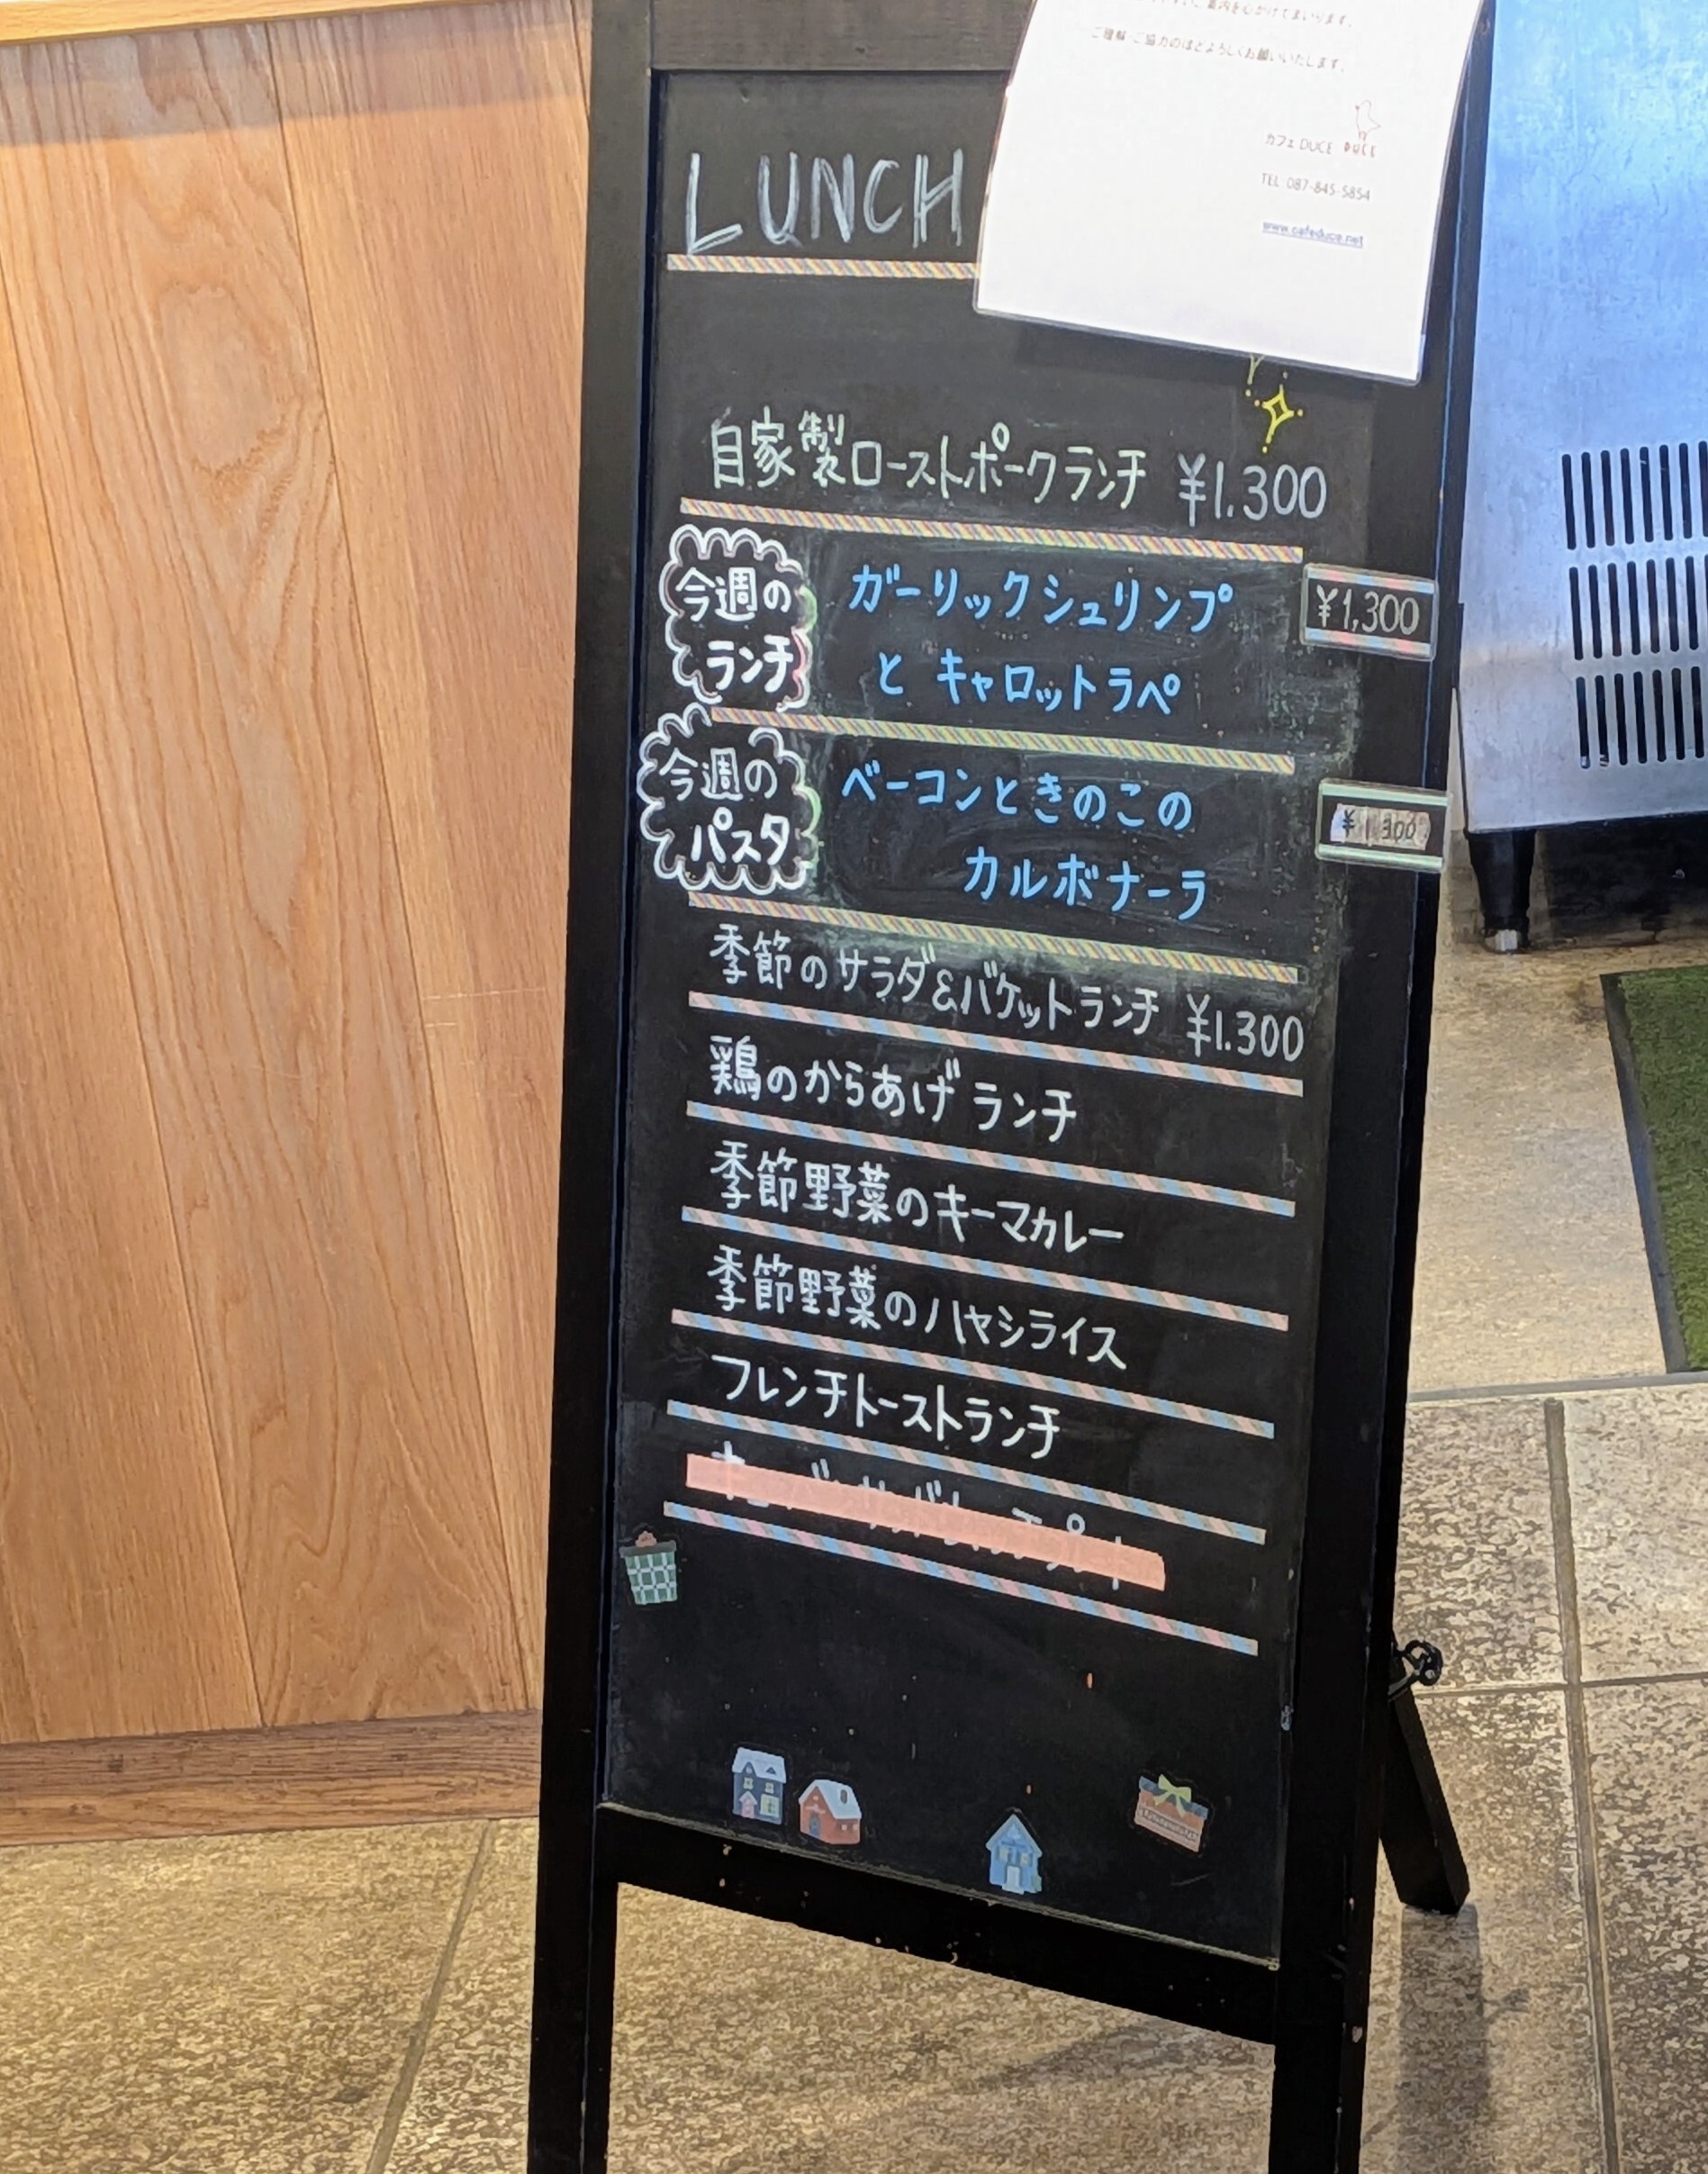 ご理解・ご協力のほどよろしくお願いいたします。
カフェ DUCE DUCE
TEL:087-845-5854
www.cafeduce.net
LUNCH
自家製ローストポークランチ ¥1.300
今週の
ランチ
ガーリックシュリンプ
と キャロットラペ
¥1,300
今週の
パスタ
ベーコンときのこの
カルボナーラ
¥1300
季節のサラダ&バケットランチ ¥1.300
鶏のからあげランチ
季節野菜のキーマカレー
季節野菜のハヤシライス
フレンチトーストランチ